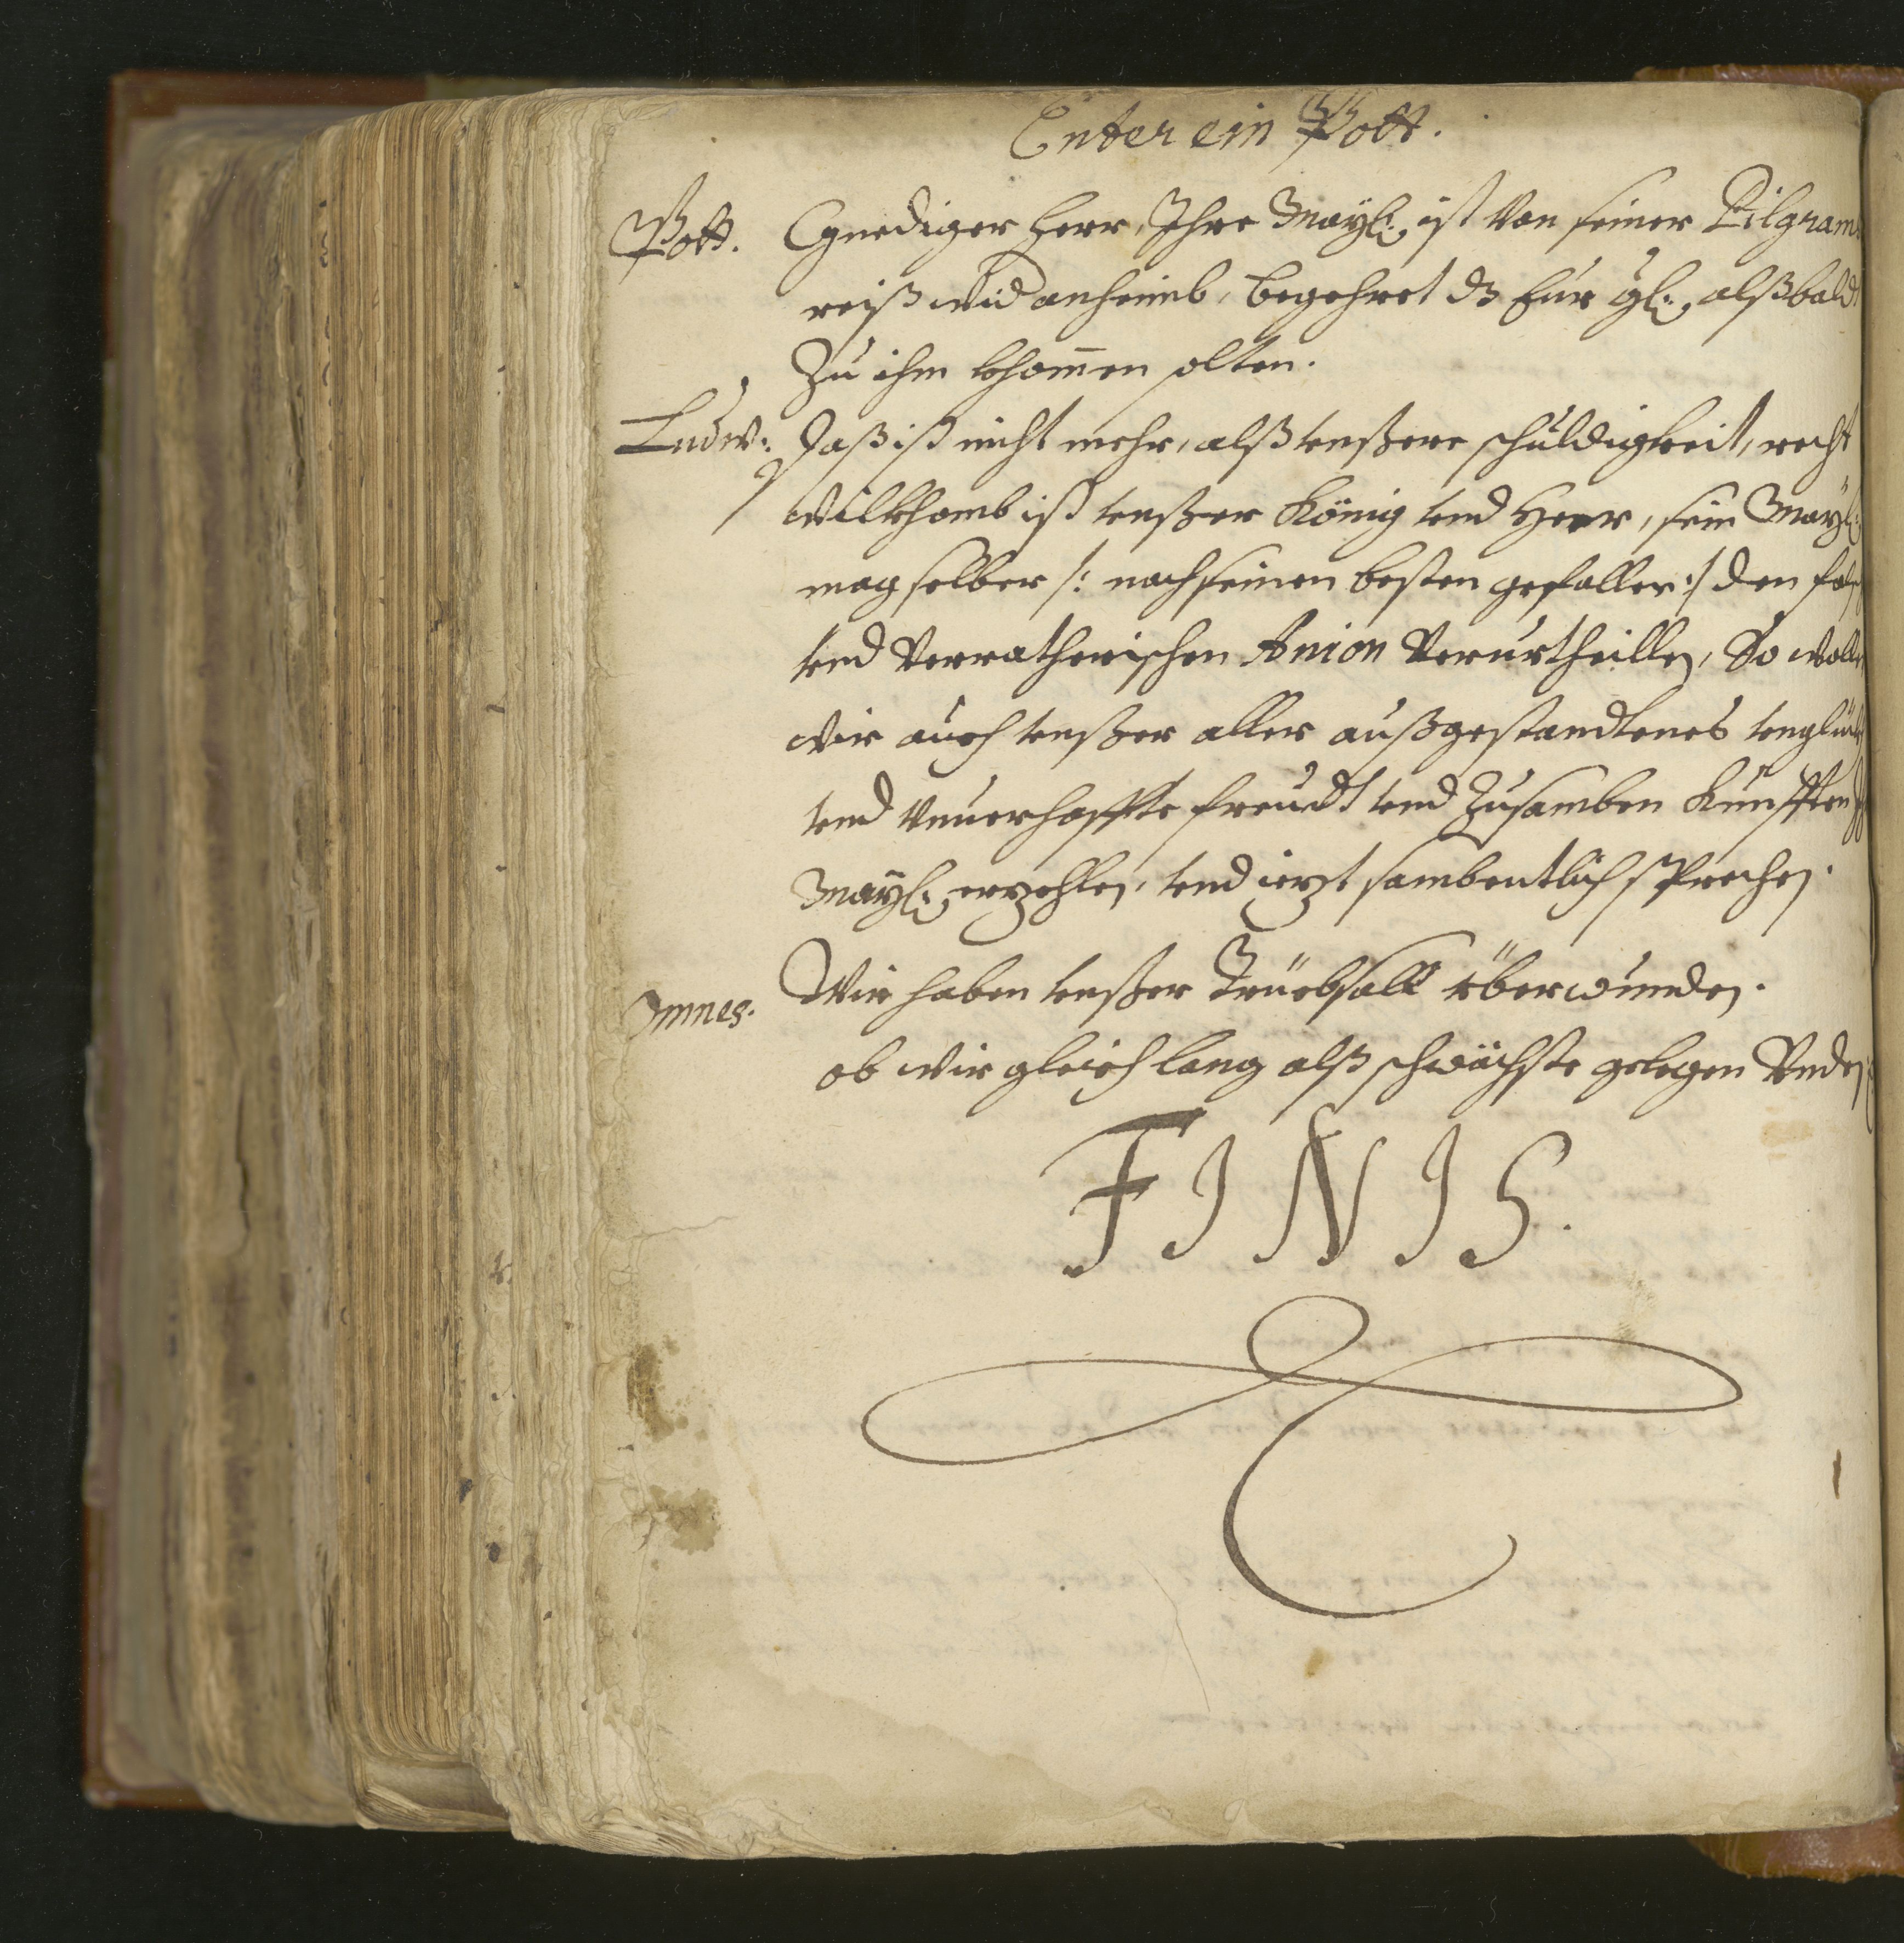 Enter ein Pott.
Pott. Gnediger herr, Ihre Mayl: ist Von seiner Pilgram
reiß wid anheimb, begehret dz Eur gl: alßbald
Zu ihm khom̄en solten.
Ludw: Daß ist nicht mehr, alß vnßere schuldigkeit, recht
wilkhomb ist vnßer König vnd Herr, sein Mayl:
mag selber /: nach seinen besten gefallen :/ den
vnd Verratherischen Anion Verurtheillen, So
wir auch vnßer aller außgestandtenes vnglück
vnd Vnuerhoffte freudt vnd Zusamben Kunfft
Mayl: erzehlen, vnd iezt sambentlich sprechen.
Omnes. Wir haben vnßer Trüebsall überwunden.
ob wir gleich lang alß schwächste gelegen Vnden
FINIS.